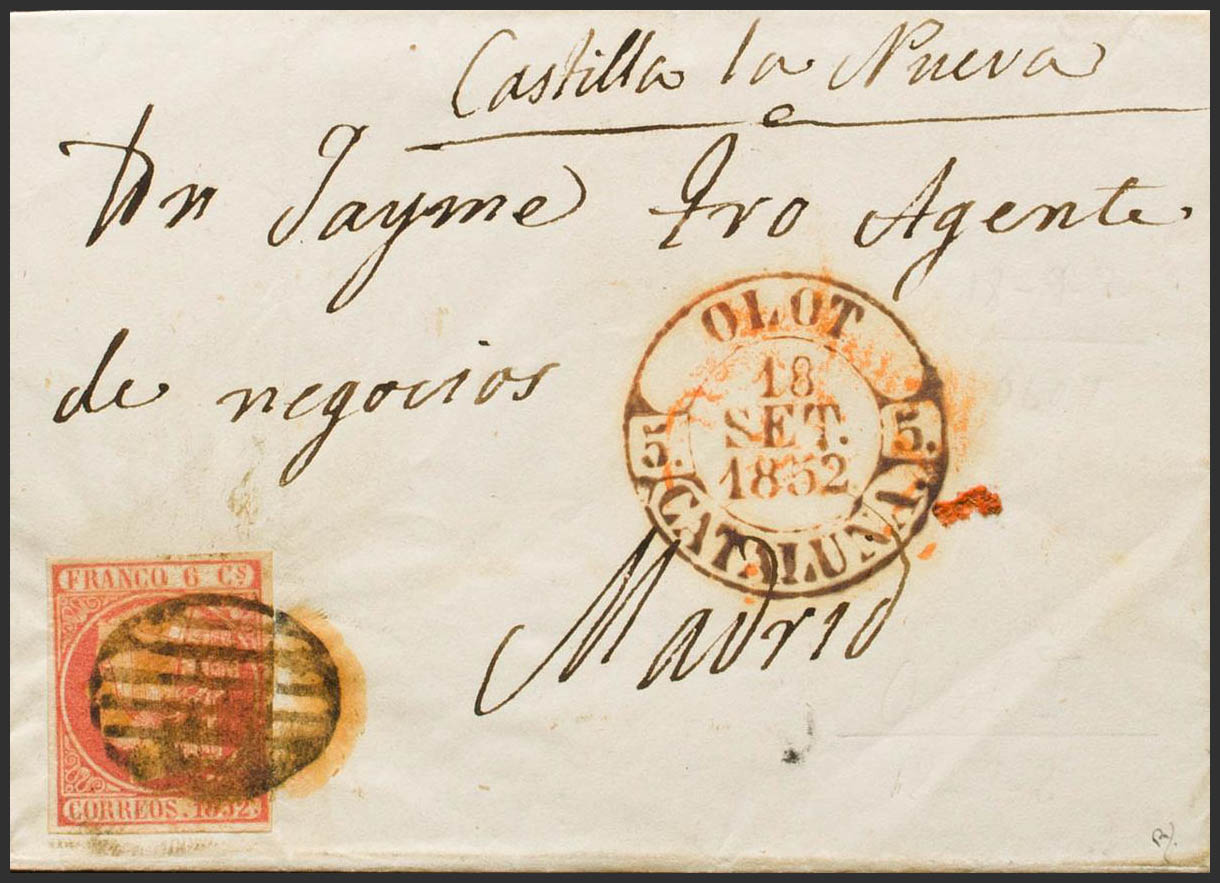 Castilla la Nueva
Dn Jayme Agente
de negocios
OLOT
18
SET.
1852
5. 5.
CATALUÑA.
Madrid
FRANCO 6 Cs
CORREOS. 1852.